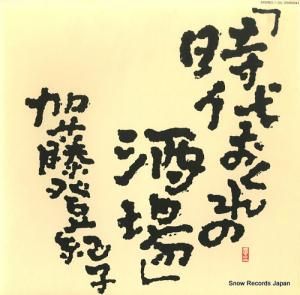 「時代おくれの
酒場」
加藤登紀子
Snow Records Japan